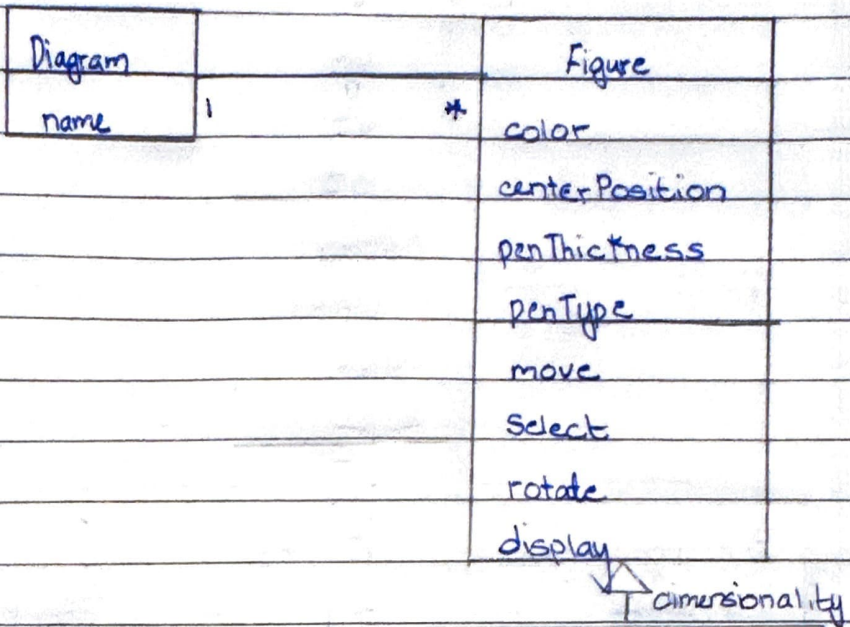 Diagram
name
1
*
Figure
color
centerPosition
penThickness
penType
move
Select
rotate
display
dimensionality